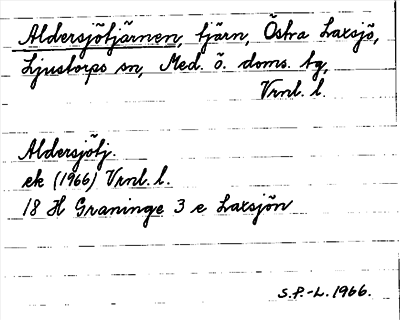 Aldersjötjärnen, tjärn, Östra Laxsjö,
Ljustorps sn, Med. ö. doms. tg,
Vrnl. l.
Aldersjötj.
ek (1966) Vrnl. l.
18 H Graninge 3 e Laxsjön
S.P.-L. 1966.